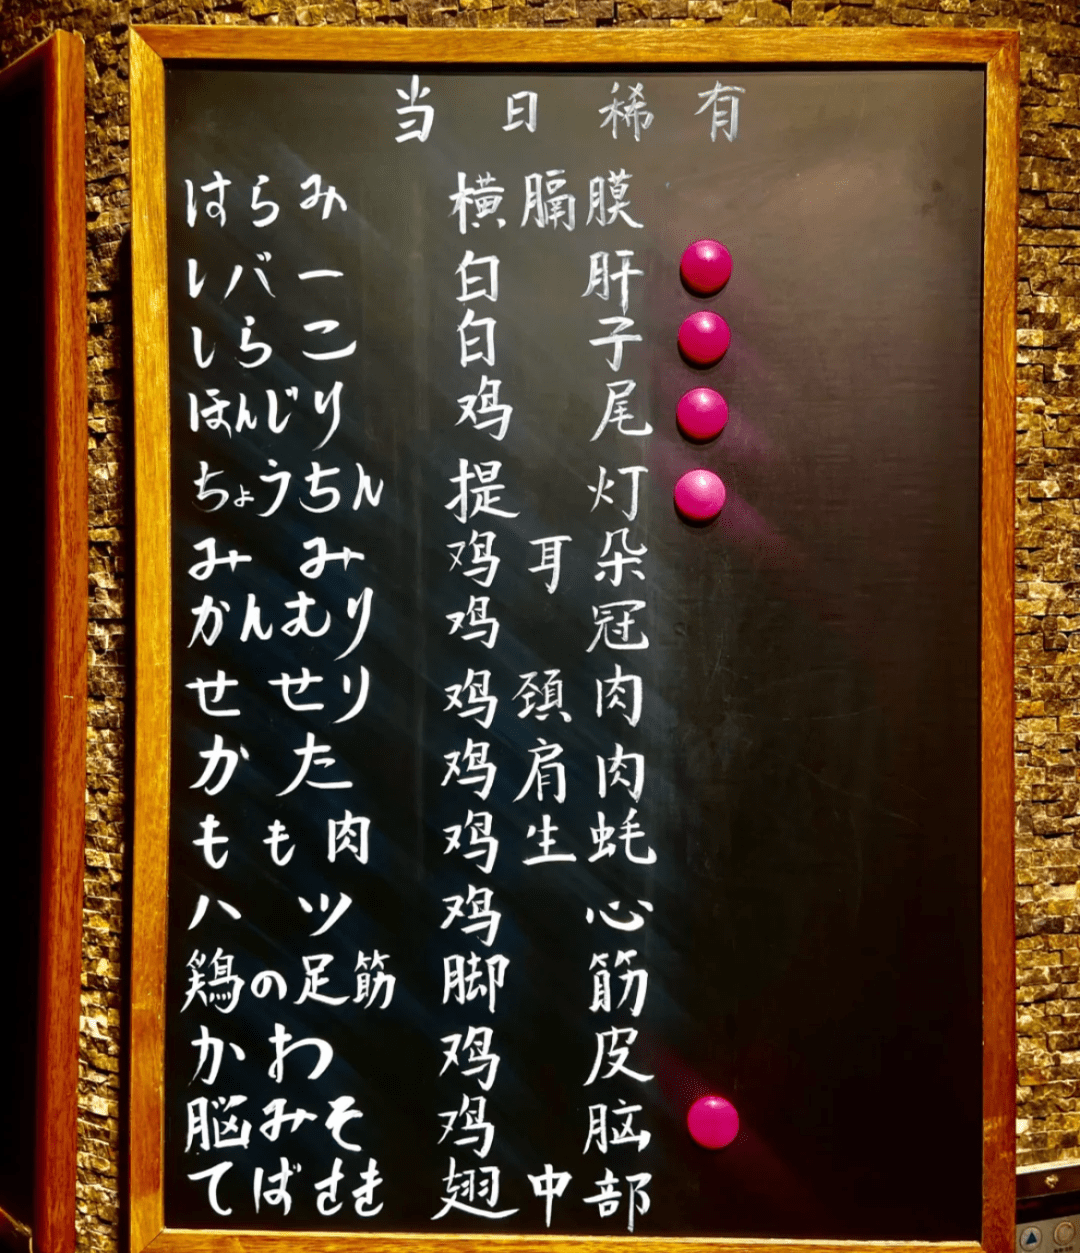 当日稀有
はらみ 横膈膜
レバー 白肝
しらこ 白子
ぼんじり 鸡尾
ちょうちん 提灯
みみ 鸡耳朵
かんむり 鸡冠
せせり 鸡颈肉
かた 鸡肩肉
もも肉 鸡生蚝
ハツ 鸡心
鶏の足筋 脚筋
かわ 鸡皮
脳みそ 鸡脑
てばさき 翅中部